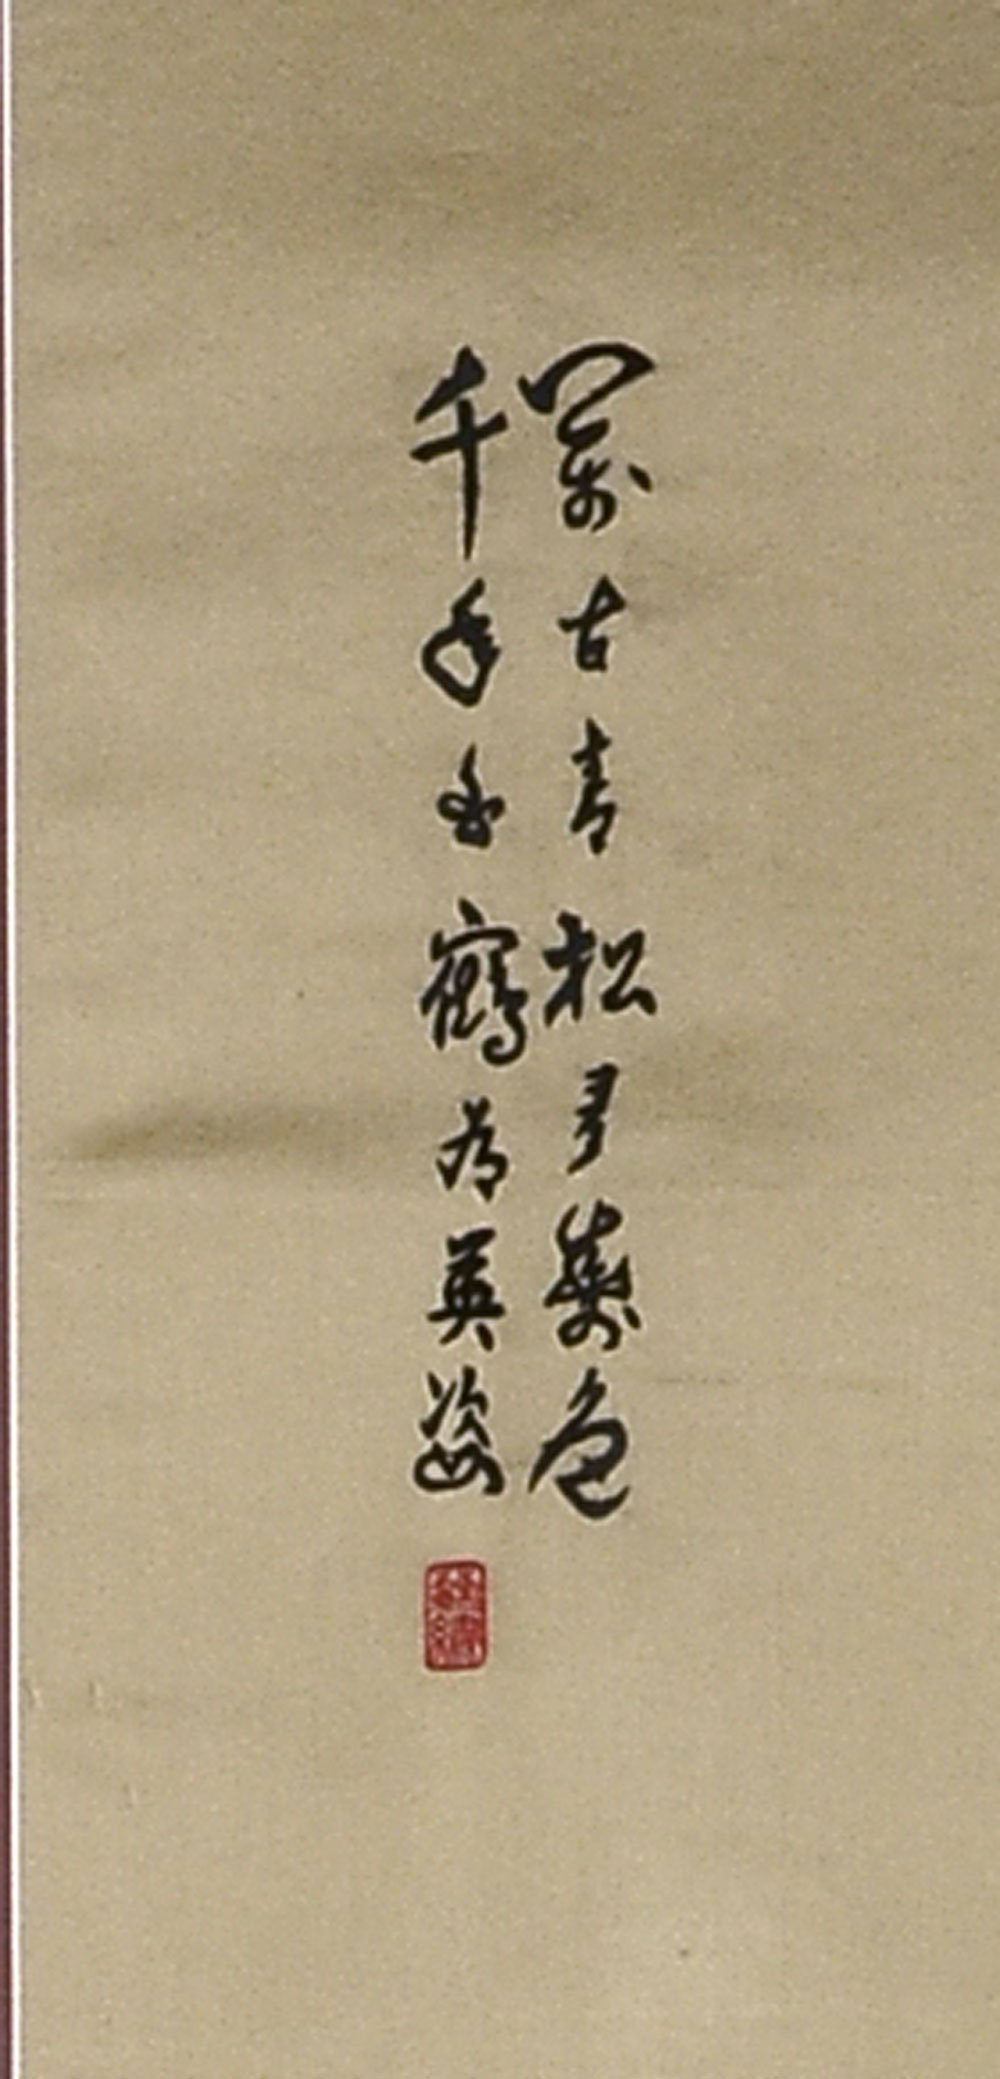 萬古青松多歲色
千年白鶴有英姿